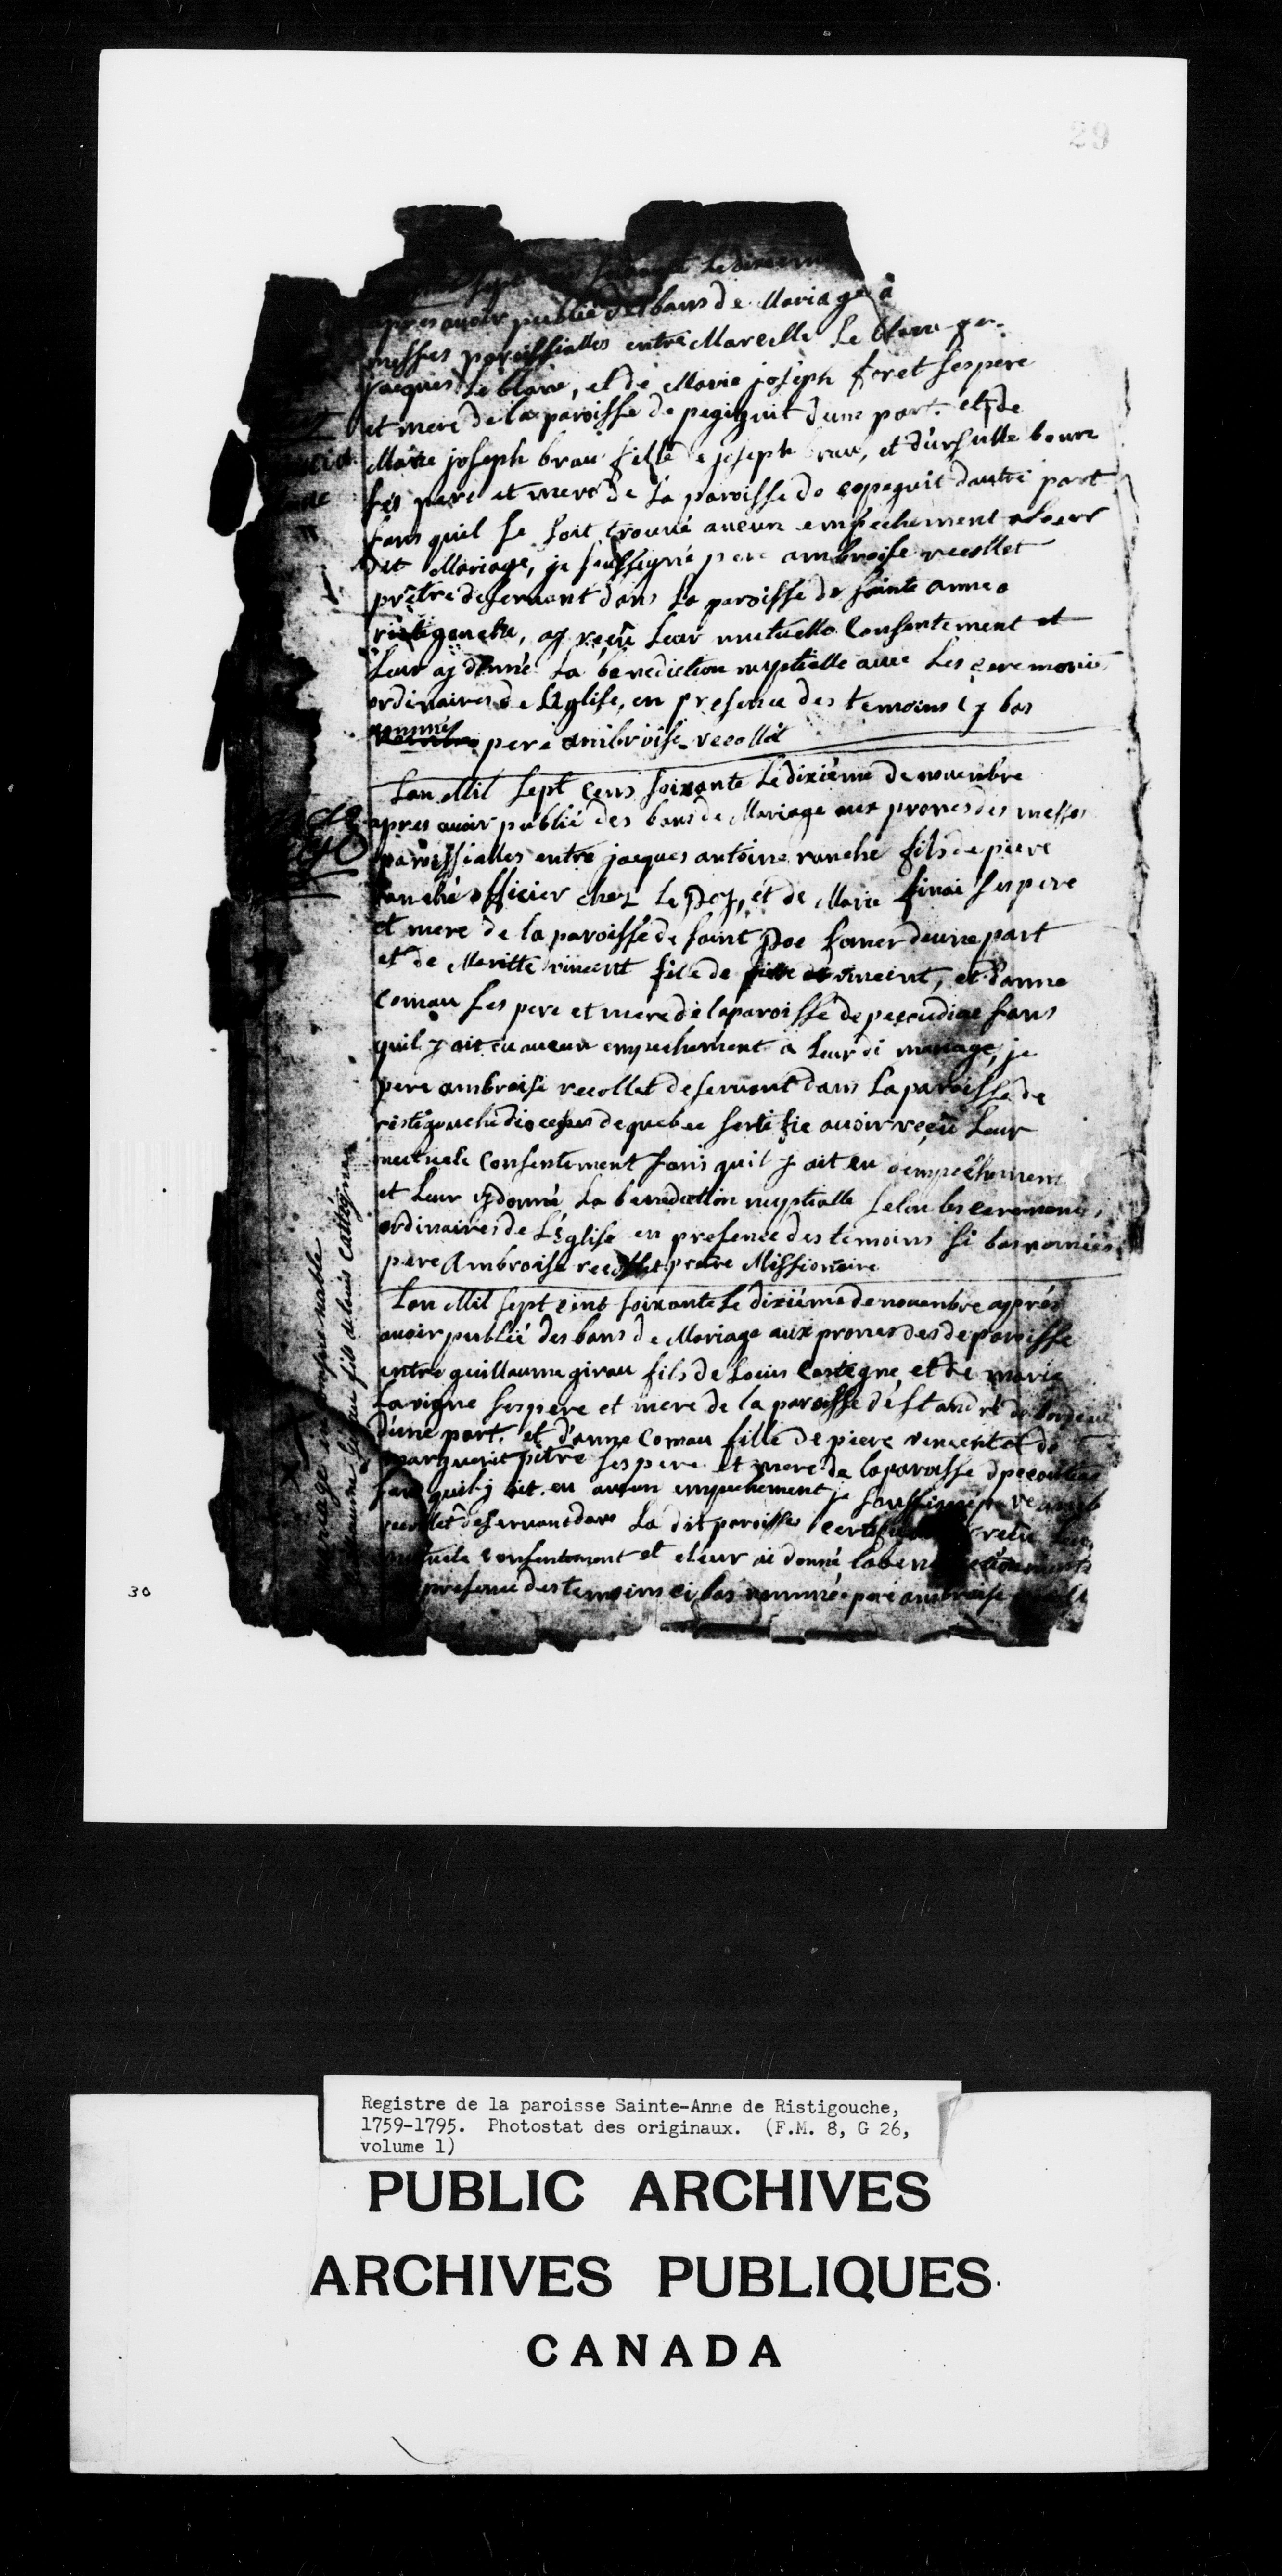 29
sept Le dixieme
apres avoir publié des bans de Mariage a
messes paroissialles entre Marcelle Le blanc
jacques Le blanc, et de Marie joseph foret ses pere
et mere de la paroisse de pegiguit dune part. et de
Marie joseph brau fille de joseph brau, et d'ursulle bourc
ses pere et mere de La paroisse de copeguit dautre part
sans quil se soit trouvé aucun empechement a leur
dit Mariage, je soussigné pere ambroise recollet
prêtre deservant dans La paroisse de sainte anne a
ristigouche, ay reçû Leur mutuelle Consentement et
Leur aj donné La bénédiction nuptialle avec Les ceremonies
ordinaires de L'Eglise, en presence des temoins cy bas
nommés pere ambroise recollet
Lan Mil sept cens soixante Le dixième de novembre
apres avoir publié des bans de Mariage aux prones des messes
paroissialles entre jacques antoine ranché fils de piere
ranché officier chez Le Roy, et de Marie finai ses pere
et mere de la paroisse de saint Roc fomer deune part
et de Maritte vincent file de vincent, et d'anne
Comau ses pere et mere de la paroisse de pescudiae sans
quil y ait eu aucun empechement a Leur di mariage, je
pere ambroise recollet deservant dans La paroisse de
ristigouche diocesse de quebec sertifie avoir reçû Leur
mutuele Consentement sans quil y ait eu d'empechement
et Leur aj donné La benediction nuptialle selon les ceremonies
ordinaires de L'Eglise en presence des temoins si bas nomées
pere Ambroise recollet pretre Missionaire
Lan Mil sept cent soixante Le dixiéme de novembre apprés
avoir publié des bans de Mariage aux prones des de paroisse
entre guillaume girau fils de Louis Castegne et de marie
Lavigne ses pere et mere de la paroisse de st andré de bordeaux
d'une part. et d'anne Comau fille de piere vincent et de
marguerit pitre ses pere et mere de la paroisse d
sans quil j ait eu aucun empechement je soussigné pere
recollet deservant dans La dit paroisse certifie reçû Leur
mutuele Consentement et eleur ai donné la
presence des temoins ci bas nommée pere ambroise
mariage
fils de louis Cattegne
30
Registre de la paroisse Sainte-Anne de Ristigouche,
1759-1795. Photostat des originaux. (F.M. 8, G 26,
volume 1)
PUBLIC ARCHIVES
ARCHIVES PUBLIQUES
CANADA